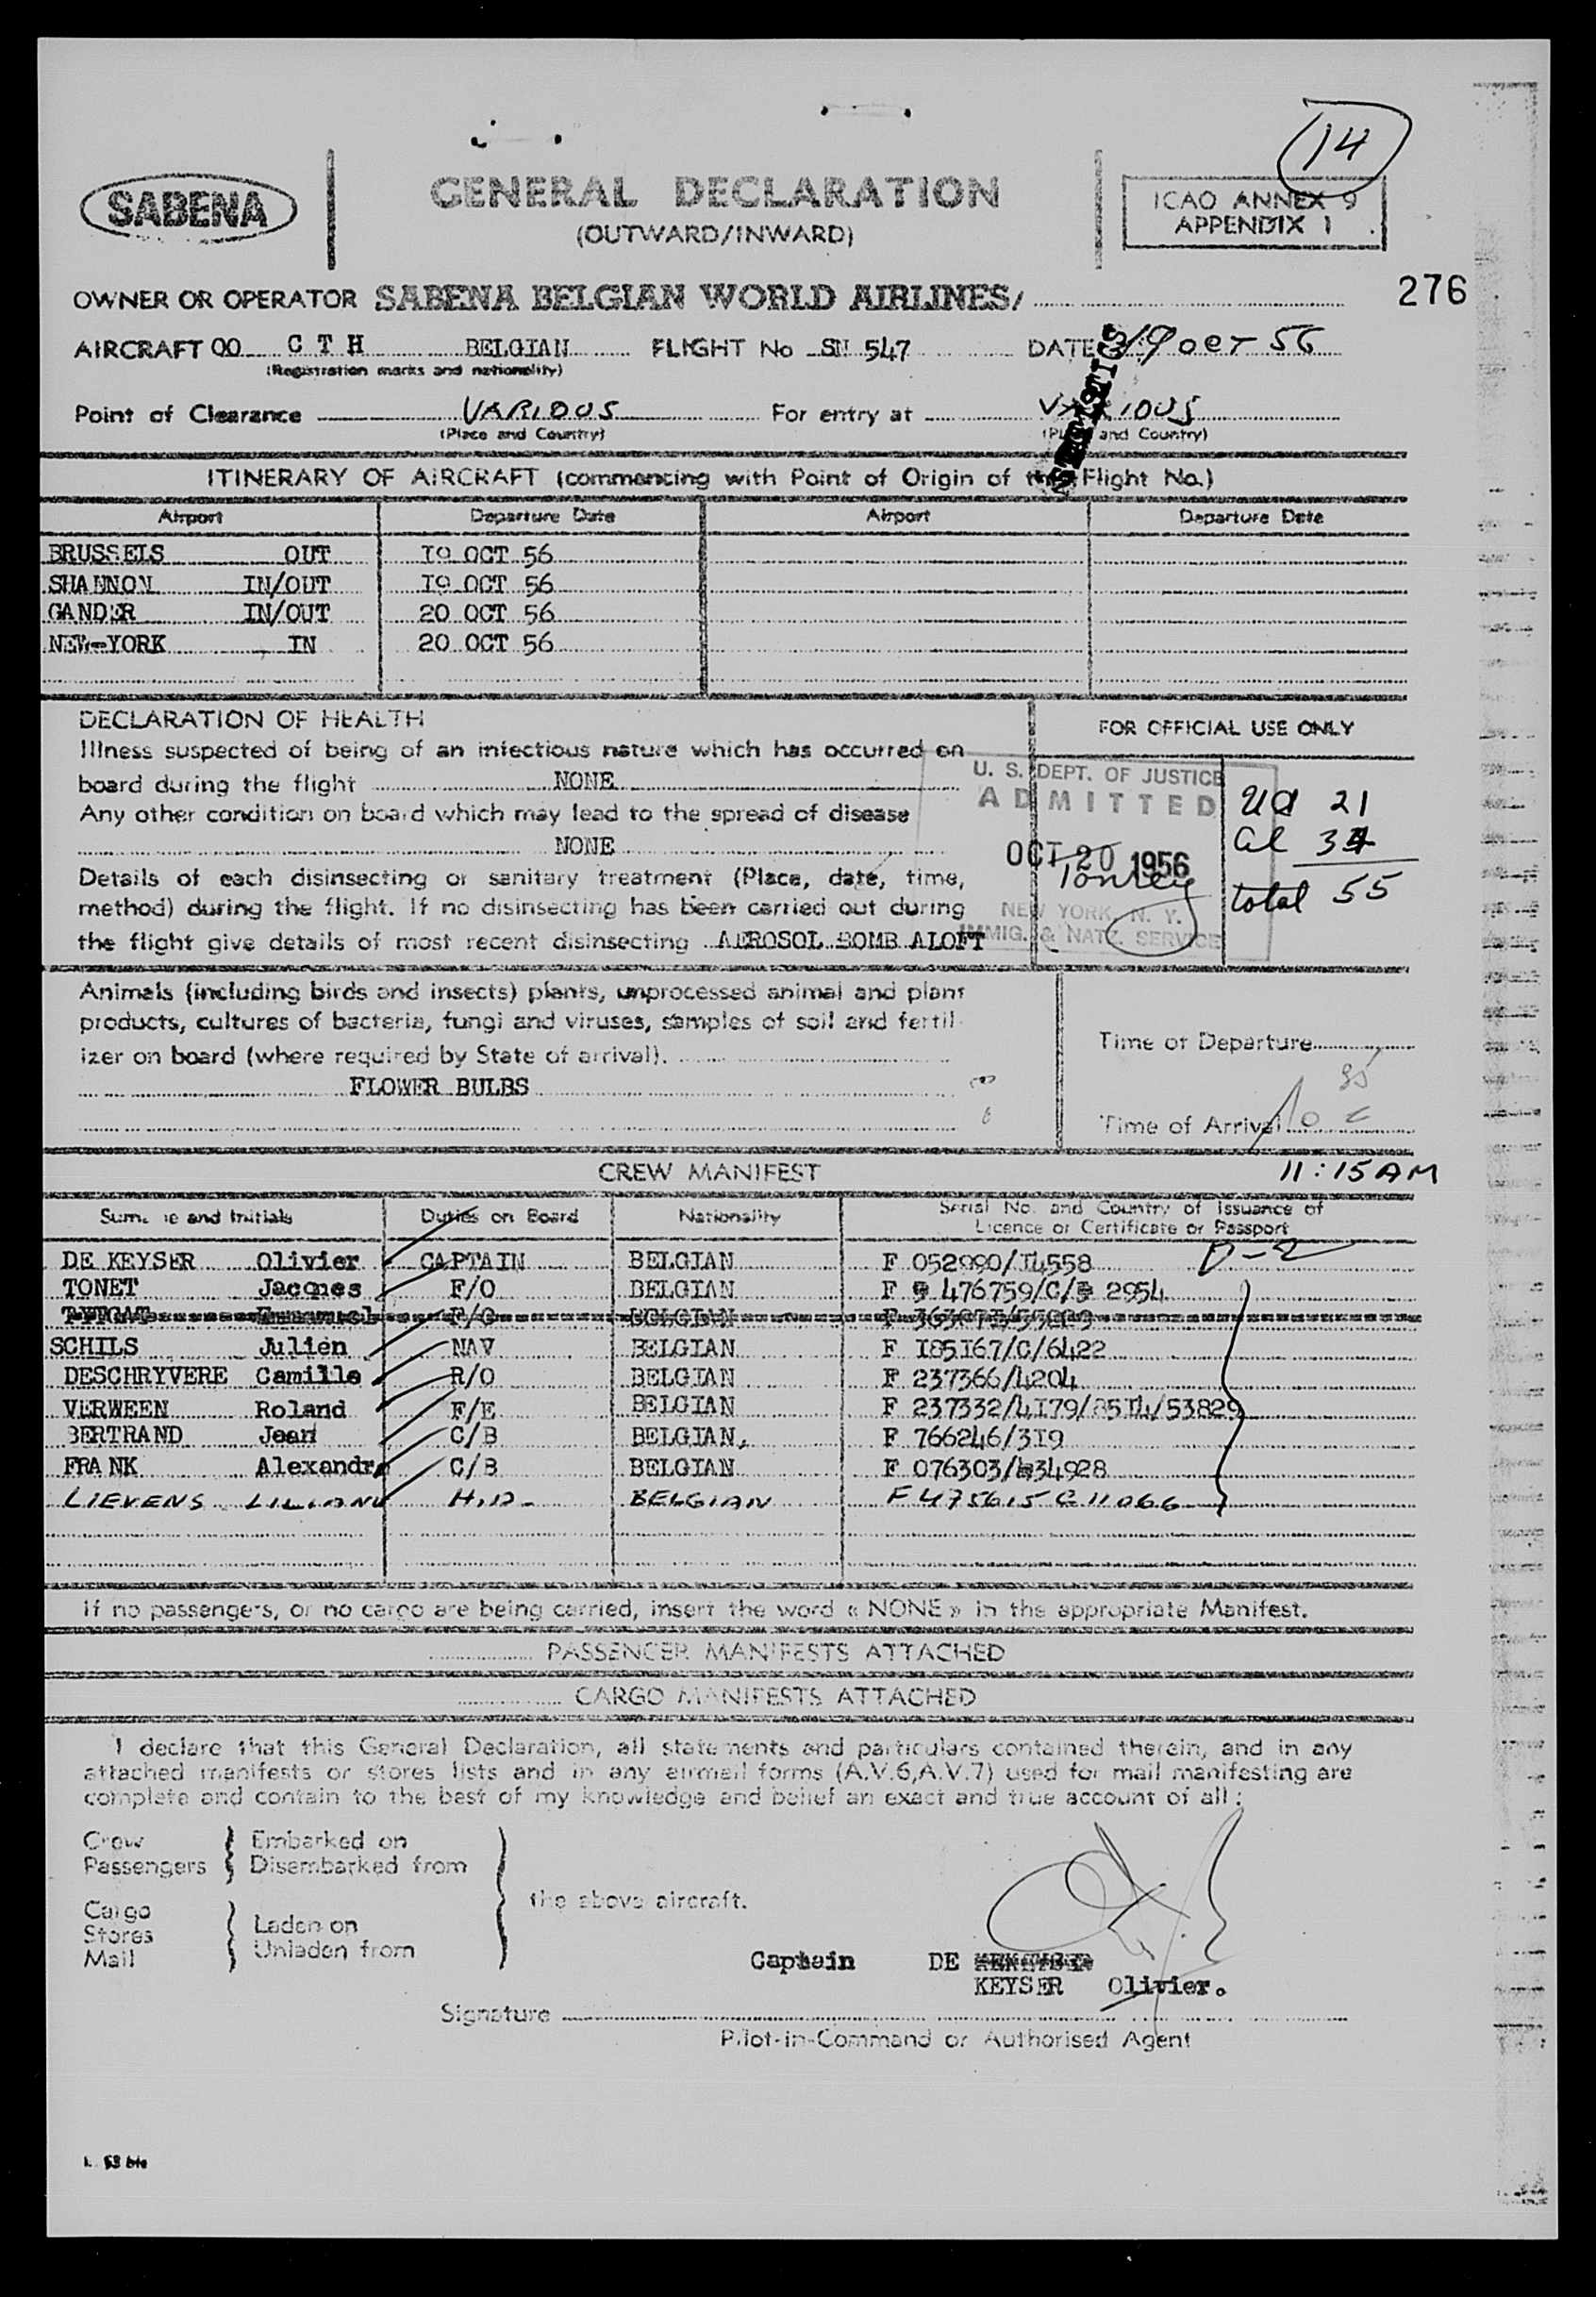 14
SABENA
GENERAL DECLARATION
(OUTWARD/INWARD)
ICAO ANNEX 9
APPENDIX 1
276
OWNER OR OPERATOR SABENA BELGIAN WORLD AIRLINES/
AIRCRAFT OO C T H BELGIAN FLIGHT No SN 547 DATE 19 OCT 56
(Registration marks and nationality)
STATISTICS
Point of Clearance VARIOUS For entry at VARIOUS
(Place and Country) (Place and Country)
ITINERARY OF AIRCRAFT (commencing with Point of Origin of this Flight No.)
Airport Departure Date Airport Departure Date
BRUSSELS OUT I9 OCT 56
SHANNON IN/OUT I9 OCT 56
GANDER IN/OUT 20 OCT 56
NEW-YORK IN 20 OCT 56
DECLARATION OF HEALTH
Illness suspected of being of an infectious nature which has occurred on
board during the flight NONE
Any other condition on board which may lead to the spread of disease
NONE
Details of each disinsecting or sanitary treatment (Place, date, time,
method) during the flight. If no disinsecting has been carried out during
the flight give details of most recent disinsecting AEROSOL BOMB ALOFT
FOR OFFICIAL USE ONLY
U. S. DEPT. OF JUSTICE
ADMITTED
OCT 20 1956
NEW YORK, N. Y.
IMMIG. & NATZ. SERVICE
21
al 34
total 55
Animals (including birds and insects) plants, unprocessed animal and plant
products, cultures of bacteria, fungi and viruses, samples of soil and fertil-
izer on board (where required by State of arrival).
FLOWER BULBS
Time of Departure
Time of Arrival
11:15 AM
CREW MANIFEST
Surname and Initials Duties on Board Nationality Serial No. and Country of Issuance of
Licence or Certificate or Passport
DE KEYSER Olivier CAPTAIN BELGIAN F 052990/I4558 D-2
TONET Jacques F/O BELGIAN F 476759/C/ 2954
Emmanuel F/O BELGIAN
SCHILS Julien NAV BELGIAN F I85I67/C/6422
DESCHRYVERE Camille R/O BELGIAN F 237366/4204
VERWEEN Roland F/E BELGIAN F 237332/4I79/85I4/53829
BERTRAND Jean C/B BELGIAN, F 766246/3I9
FRANK Alexandre C/B BELGIAN F 076303/434928
LIEVENS LILIANE H.D- BELGIAN F 475615 C 11066
If no passengers, or no cargo are being carried, insert the word « NONE » in the appropriate Manifest.
PASSENGER MANIFESTS ATTACHED
CARGO MANIFESTS ATTACHED
I declare that this General Declaration, all statements and particulars contained therein, and in any
attached manifests or stores lists and in any airmail forms (A.V.6,A.V.7) used for mail manifesting are
complete and contain to the best of my knowledge and belief an exact and true account of all :
Crew Embarked on
Passengers Disembarked from
the above aircraft.
Cargo
Stores Laden on
Mail Unladen from
Captain DE
KEYSER Olivier.
Signature
Pilot-in-Command or Authorised Agent
53 bis